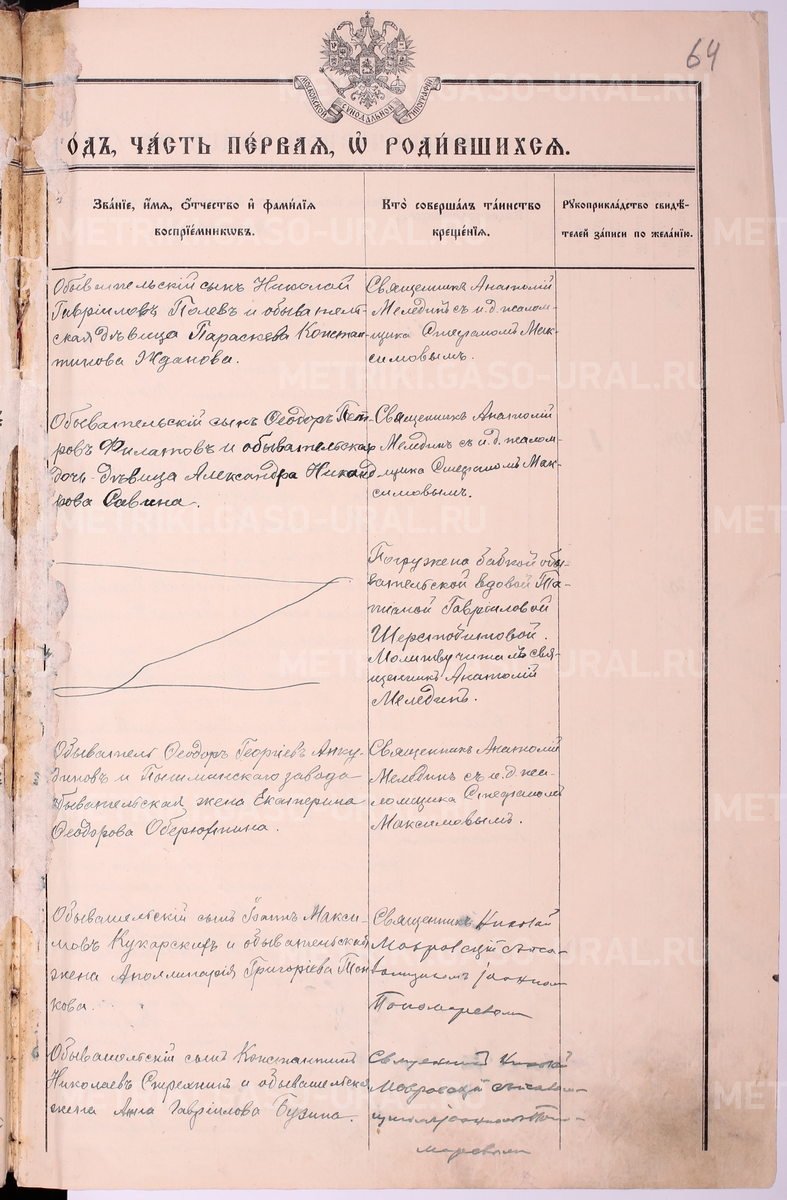 64
МОСКОВСКОЙ СѴНОДАЛЬНОЙ ТИПОГРАФІИ
ГОДЪ, ЧАСТЬ ПЕРВАЯ, Ѡ РОДИВШИХСЯ.
Званіе, имя, отчество и фамилія
воспріемниковъ.
Кто совершалъ таинство
крещенія.
Рукоприкладство свидѣ-
телей записи по желанію.
Обывательскій сынъ Николай
Гавріиловъ Полевъ и обыватель-
ская дѣвица Параскева Констан-
тинова Жданова.
Священникъ Анатолій
Мелединъ съ и.д. псалом-
щика Стефаномъ Мак-
симовымъ.
Обывательскій сынъ Ѳеодоръ Пет-
ровъ Филатовъ и обывательская
дочь дѣвица Александра Никанд-
рова Савина.
Священникъ Анатолій
Меледин съ и.д. псалом-
щика Стефаномъ Мак-
симовымъ.
Погружена бабкой обы-
вательской вдовой Та-
тианой Гавріиловой
Шерстобитовой.
Молитву читалъ свя-
щенникъ Анатолій
Меледин.
Обыватель Ѳеодоръ Георгіевъ Анку-
диновъ и Пышминскаго завода
обывательская жена Екатерина
Ѳеодорова Оберюхтина.
Священникъ Анатолій
Меледин съ и.д. пса-
ломщика Стефаномъ
Максимовымъ.
Обывательскій сынъ Іоаннъ Макси-
мовъ Кукарскихъ и обывательская
жена Аполлинарія Григоріева
кова.
Священникъ Николай
Мавровскій съ пса-
ломщикомъ Іоанном
Пономаревом
Обывательскій сынъ Константинъ
Николаевъ Стрехнинъ и обывательская
жена Анна Гавріилова Бузина.
Священникъ Николай
Мавровскій съ псалом-
щикомъ Іоанномъ Поно-
маревым
METRIKI.GASO-URAL.RU